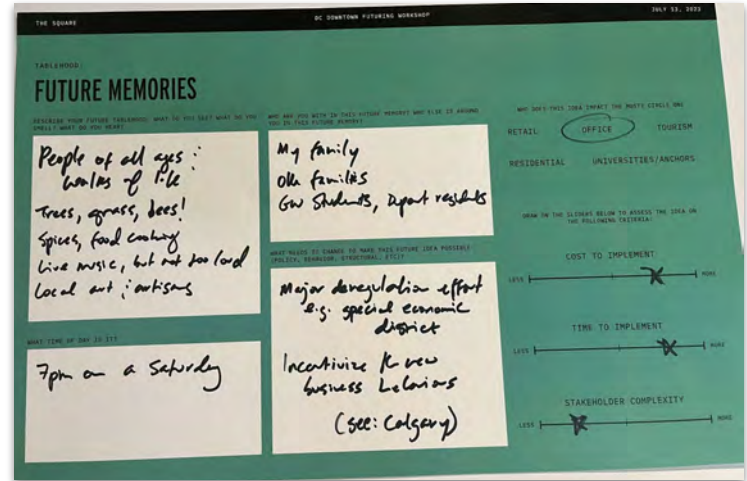 THE SQUARE
DC DOWNTOWN FUTURING WORKSHOP
JULY 13, 2023
TABLEHOOD:
FUTURE MEMORIES
DESCRIBE YOUR FUTURE TABLEHOOD: WHAT DO YOU SEE? WHAT DO YOU
SMELL? WHAT DO YOU HEAR?
People of all ages :
walks of life
Trees, grass, bees!
Spices, food cooking
Live music, but not too loud
Local art : artisans
WHAT TIME OF DAY IS IT?
7pm on a Saturday
WHO ARE YOU WITH IN THIS FUTURE MEMORY? WHO ELSE IS AROUND
YOU IN THIS FUTURE MEMORY?
My family
Other families
GW Students, Dupont residents
WHAT NEEDS TO CHANGE TO MAKE THIS FUTURE IDEA POSSIBLE
(POLICY, BEHAVIOR, STRUCTURAL, ETC)?
Major deregulation effort
e.g. special economic
district
Incentivize new
business behaviors
(see: Calgary)
WHO DOES THIS IDEA IMPACT THE MOST? CIRCLE ONE
RETAIL OFFICE TOURISM
RESIDENTIAL UNIVERSITIES/ANCHORS
DRAW ON THE SLIDERS BELOW TO ASSESS THE IDEA ON
THE FOLLOWING CRITERIA:
COST TO IMPLEMENT
LESS MORE
TIME TO IMPLEMENT
LESS MORE
STAKEHOLDER COMPLEXITY
LESS MORE